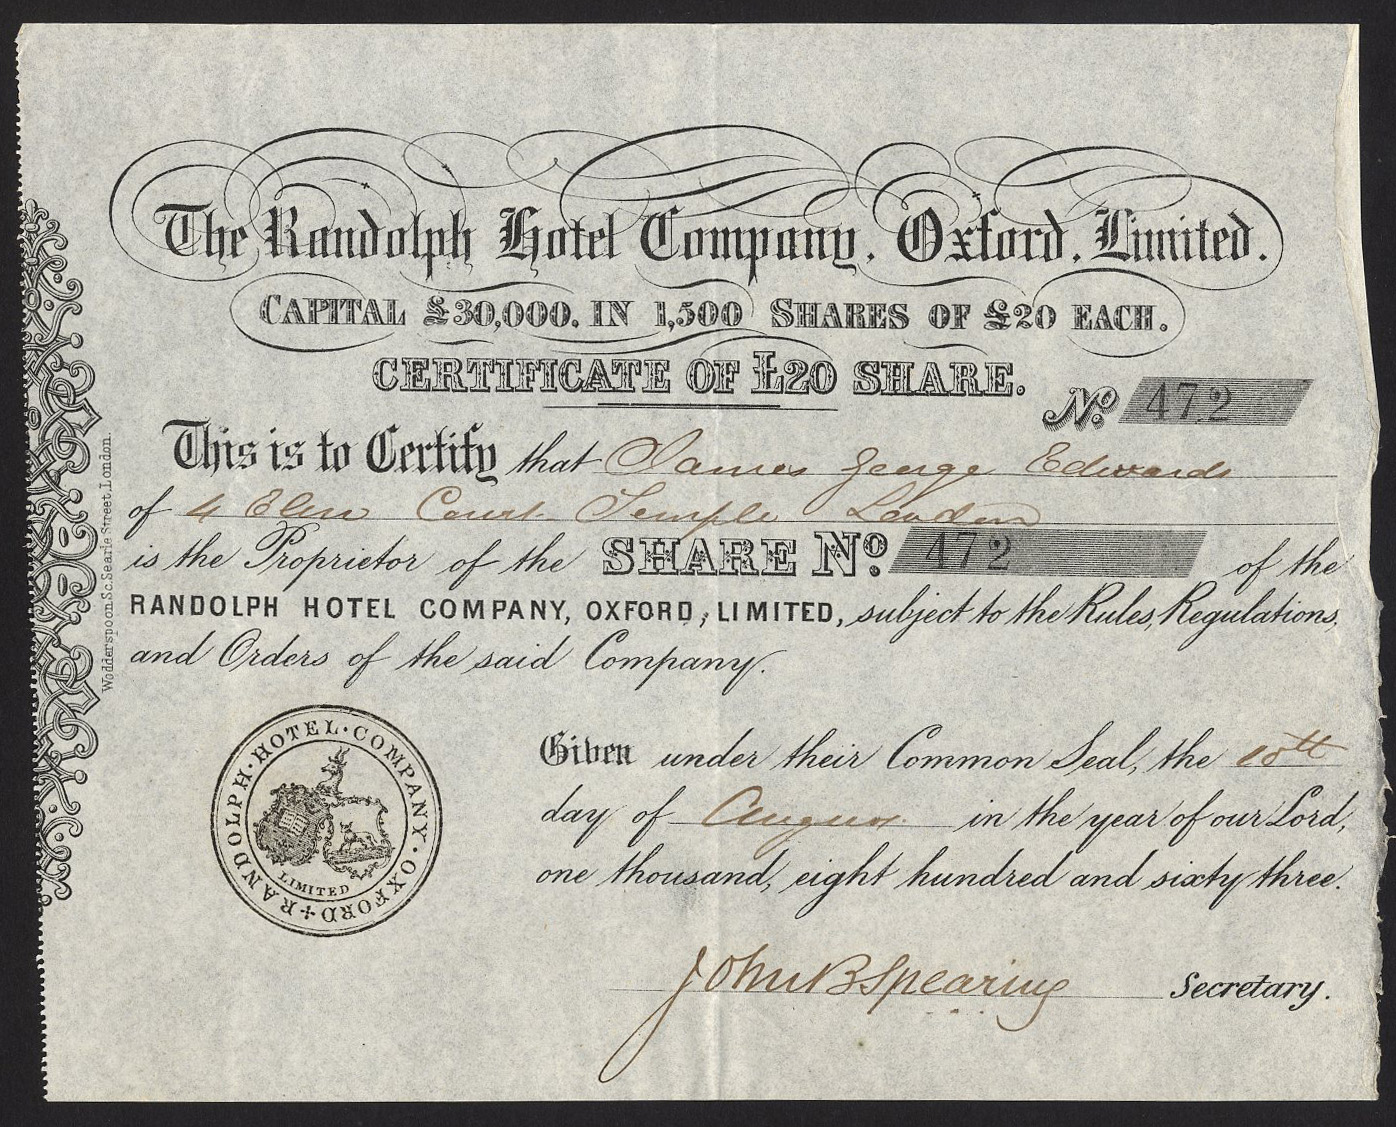 The Randolph Hotel Company, Oxford, Limited.
CAPITAL £30,000. IN 1,500 SHARES OF £20 EACH.
CERTIFICATE OF £20 SHARE.
No. 472
This is to Certify that James George Edwards
of 4 Elm Court Temple London
is the Proprietor of the SHARE No. 472 of the
RANDOLPH HOTEL COMPANY, OXFORD, LIMITED, subject to the Rules, Regulations,
and Orders of the said Company.
Wodderspoon Sc. Searle Street, London.
RANDOLPH·HOTEL·COMPANY·OXFORD
LIMITED
Given under their Common Seal, the 10th
day of August in the year of our Lord,
one thousand, eight hundred and sixty three.
John B Spearing Secretary.